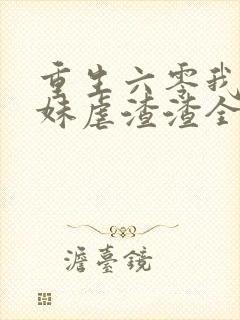 重生六零我
妹虐渣渣全
澹臺鏡